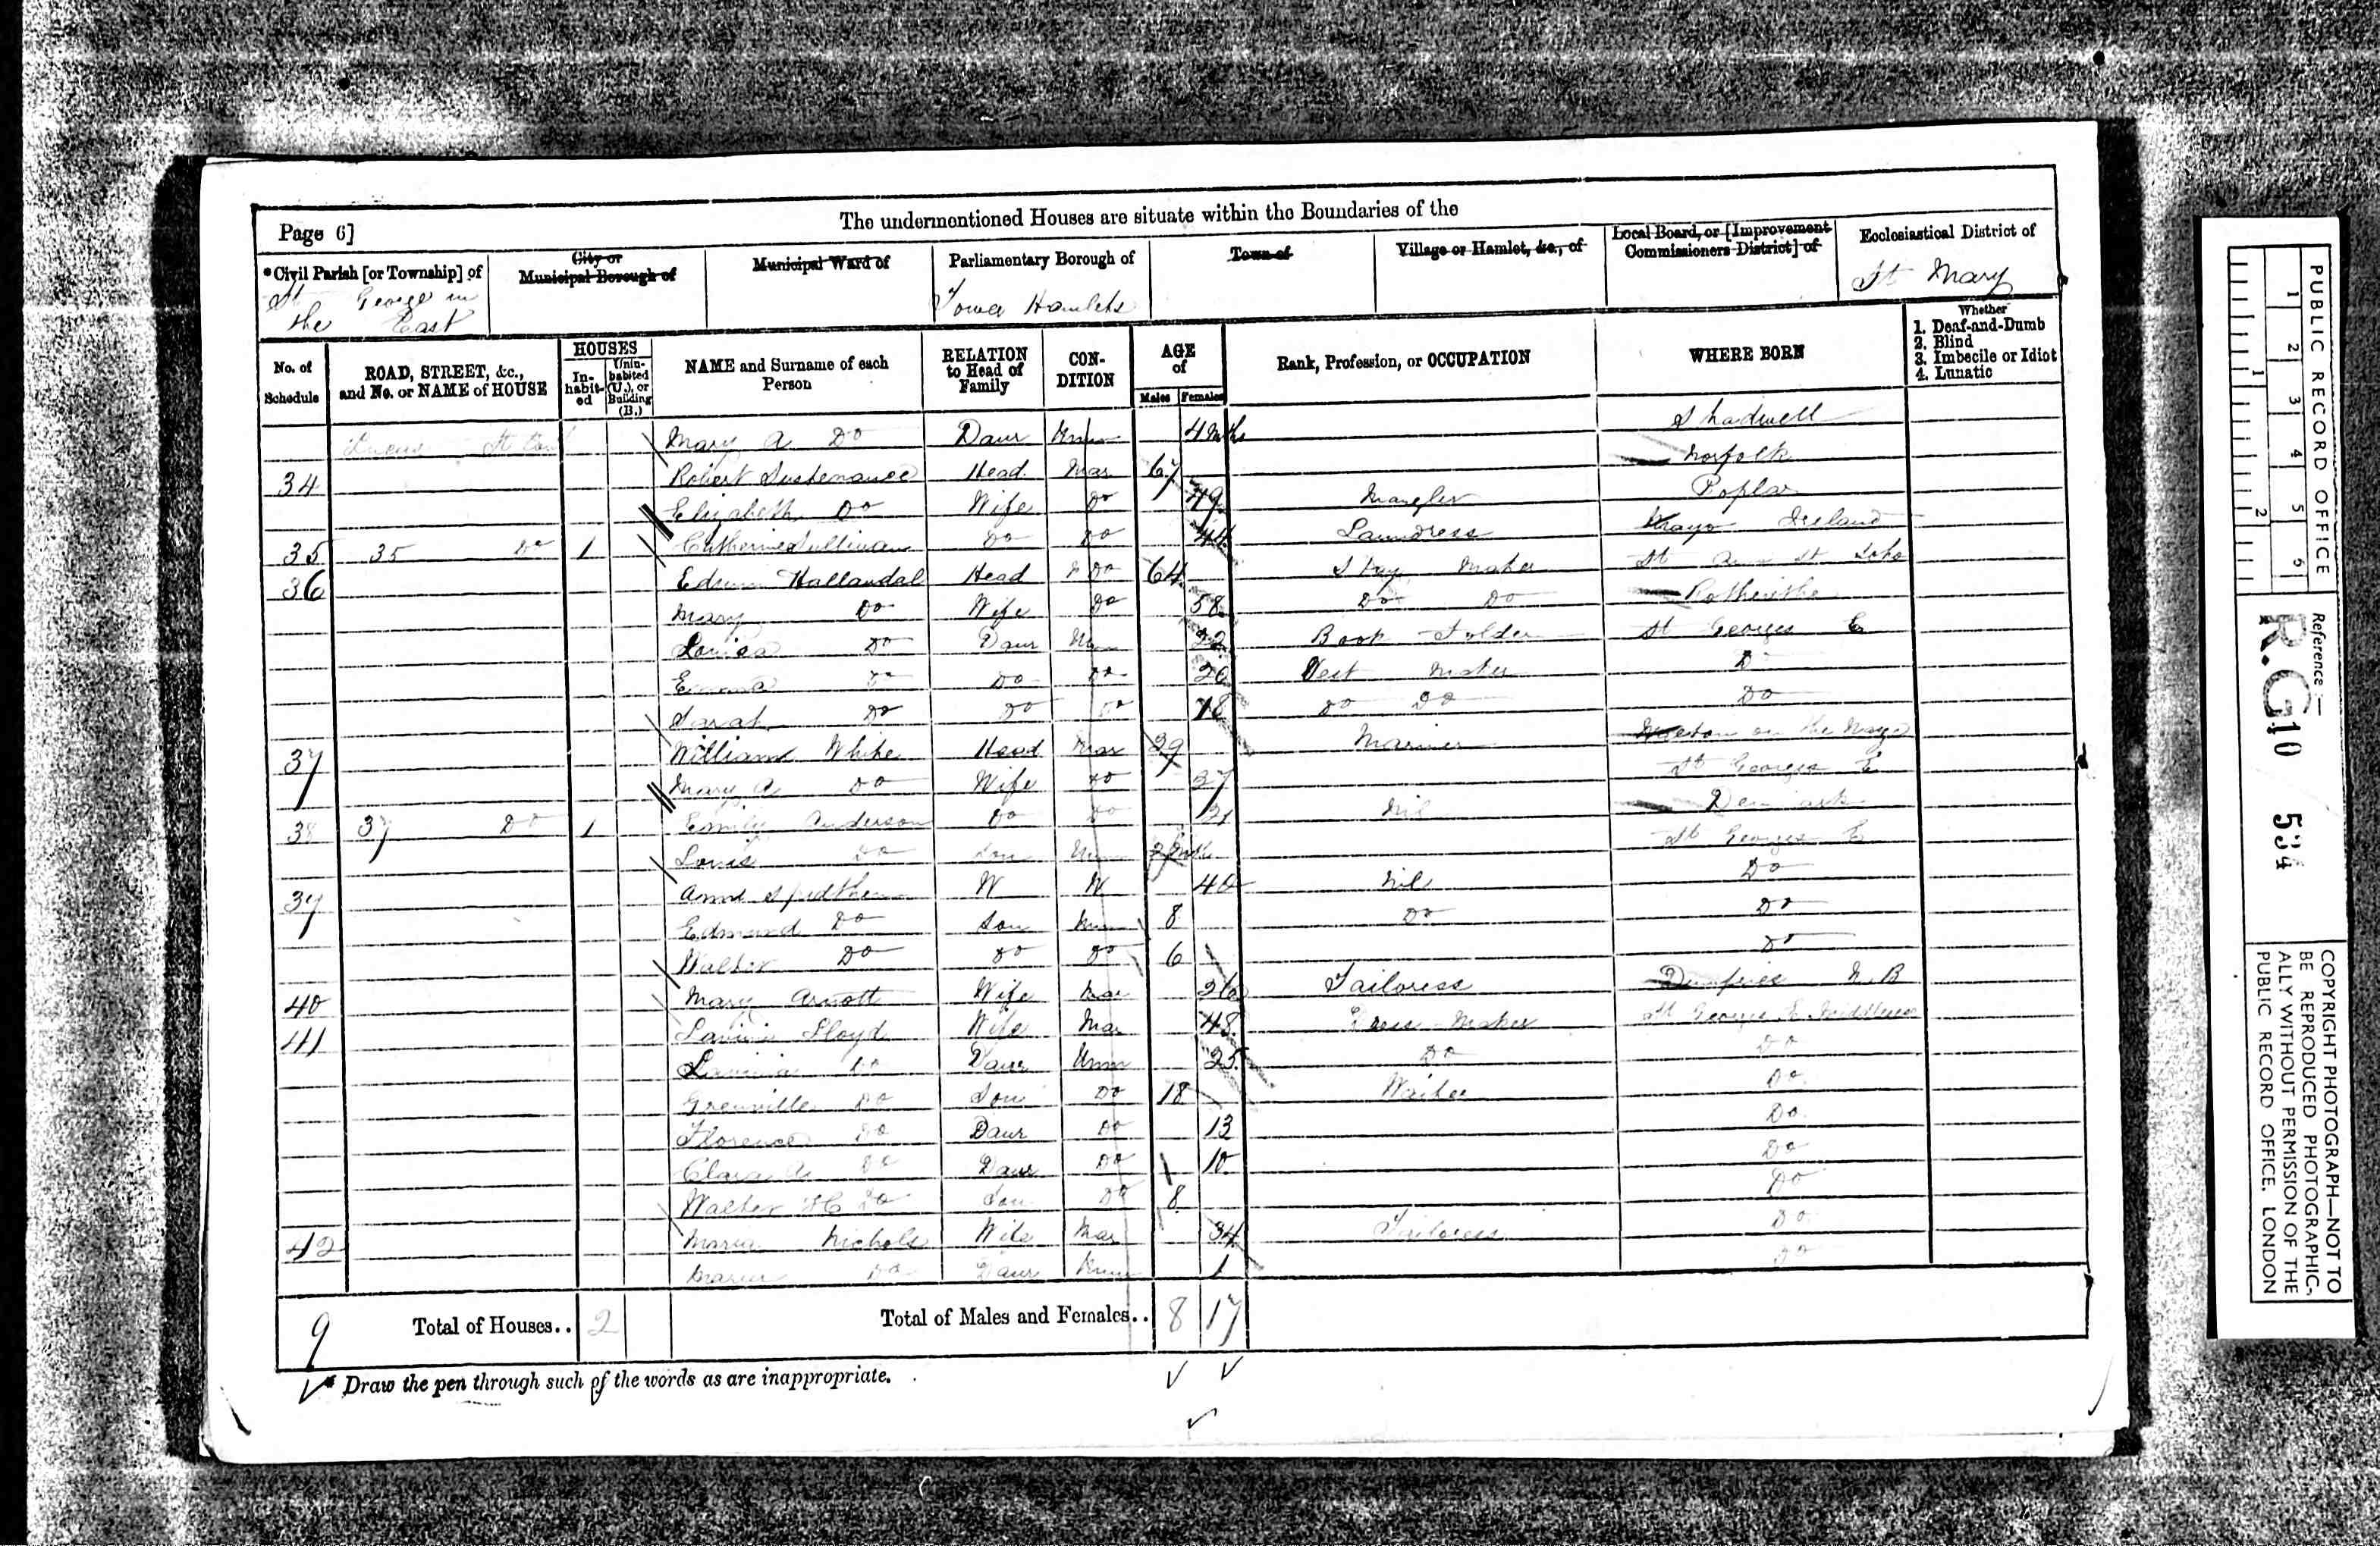 The undermentioned Houses are situate within the Boundaries of the
Page 6]
*Civil Parish [or Township] of
St George in
the East
City or
Municipal Borough of
Municipal Ward of
Parliamentary Borough of
Tower Hamlets
Town of
Village or Hamlet, &c., of
Local Board, or [Improvement
Commissioners District] of
Ecclesiastical District of
St Mary
No. of
Schedule
ROAD, STREET, &c.,
and No. or NAME of HOUSE
HOUSES
In-
habit-
ed
Unin-
habited
(U.), or
Building
(B.)
NAME and Surname of each
Person
RELATION
to Head of
Family
CON-
DITION
AGE
of
Males Females
Rank, Profession, or OCCUPATION
WHERE BORN
Whether
1. Deaf-and-Dumb
2. Blind
3. Imbecile or Idiot
4. Lunatic
Mary A Do Daur Unm 4 Mths Shadwell
34 Robert Sustenance Head Mar 67 Norfolk
Elizabeth Do Wife Do 49 Mangler Poplar
35 35 Do 1 Catherine Sullivan Do Do 44 Laundress Mayo Ireland
36 Hallandal Head Do 64 Stay Maker St Ann St Soho
Mary Do Wife Do 58 Do Do Rotherithe
Louisa Do Daur Unm 22 Book Folder St Georges E
Emma Do Do Do 20 Vest Maker Do
Sarah Do Do Do 18 Do Do Do
37 William White Head Mar 29 Mariner on the
Mary A Do Wife Do 27 St Georges E
38 37 Do 1 Emily Anderson Do Do 21 Nil Denmark
Louis Do Son Unm St Georges E
37 Ann W W 40 Nil Do
Edmund Do Son Unm 8 Do Do
Walter Do Do Do 6 Do
40 Mary Arnott Wife Mar 26 Tailoress Dumfries N B
41 Lavinia Lloyd Wife Mar 48 Dress Maker St Georges E Middlesex
Lavinia Do Daur Unm 25 Do Do
Grenville Do Son Do 18 Waiter Do
Florence Do Daur Do 13 Do
Clara A Do Daur Do 10 Do
Walter H C Do Son Do 8 Do
42 Maria Nichols Wife Mar 34 Tailoress Do
Maria Do Daur Unm 1 Do
9 Total of Houses.. 2 Total of Males and Females.. 8 17
* Draw the pen through such of the words as are inappropriate.
PUBLIC RECORD OFFICE
1 2 3 4 5 6
1 2
Reference:—
R.G. 10 534
COPYRIGHT PHOTOGRAPH—NOT TO
BE REPRODUCED PHOTOGRAPHIC-
ALLY WITHOUT PERMISSION OF THE
PUBLIC RECORD OFFICE, LONDON